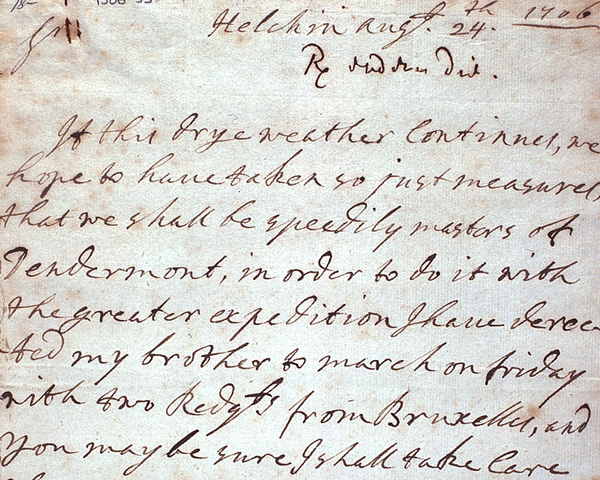 Sr
Helchin Augst. 24th. 1706
Rx
If this drye weather Continues, we
hope to have taken so just measures,
that we shall be speedily masters of
Dendermont, in order to do it with
the greater expedition I have derec-
ted my brother to march on friday
with two Redgts from Bruxelles, and
you may be sure I shall take Care